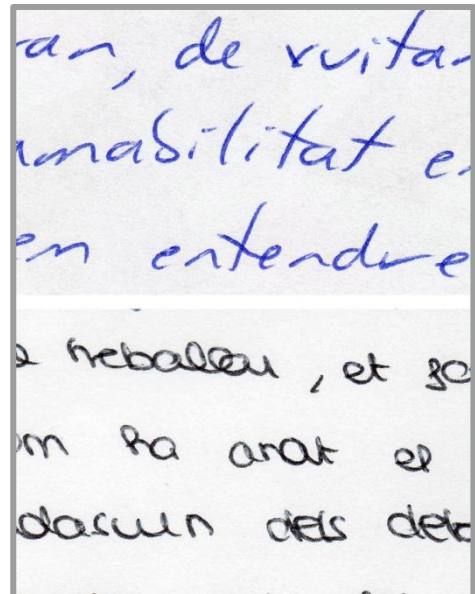 an, de vuitan
amabilitat e
em entendre
treballeu, et
om ha anat el
dascun dels